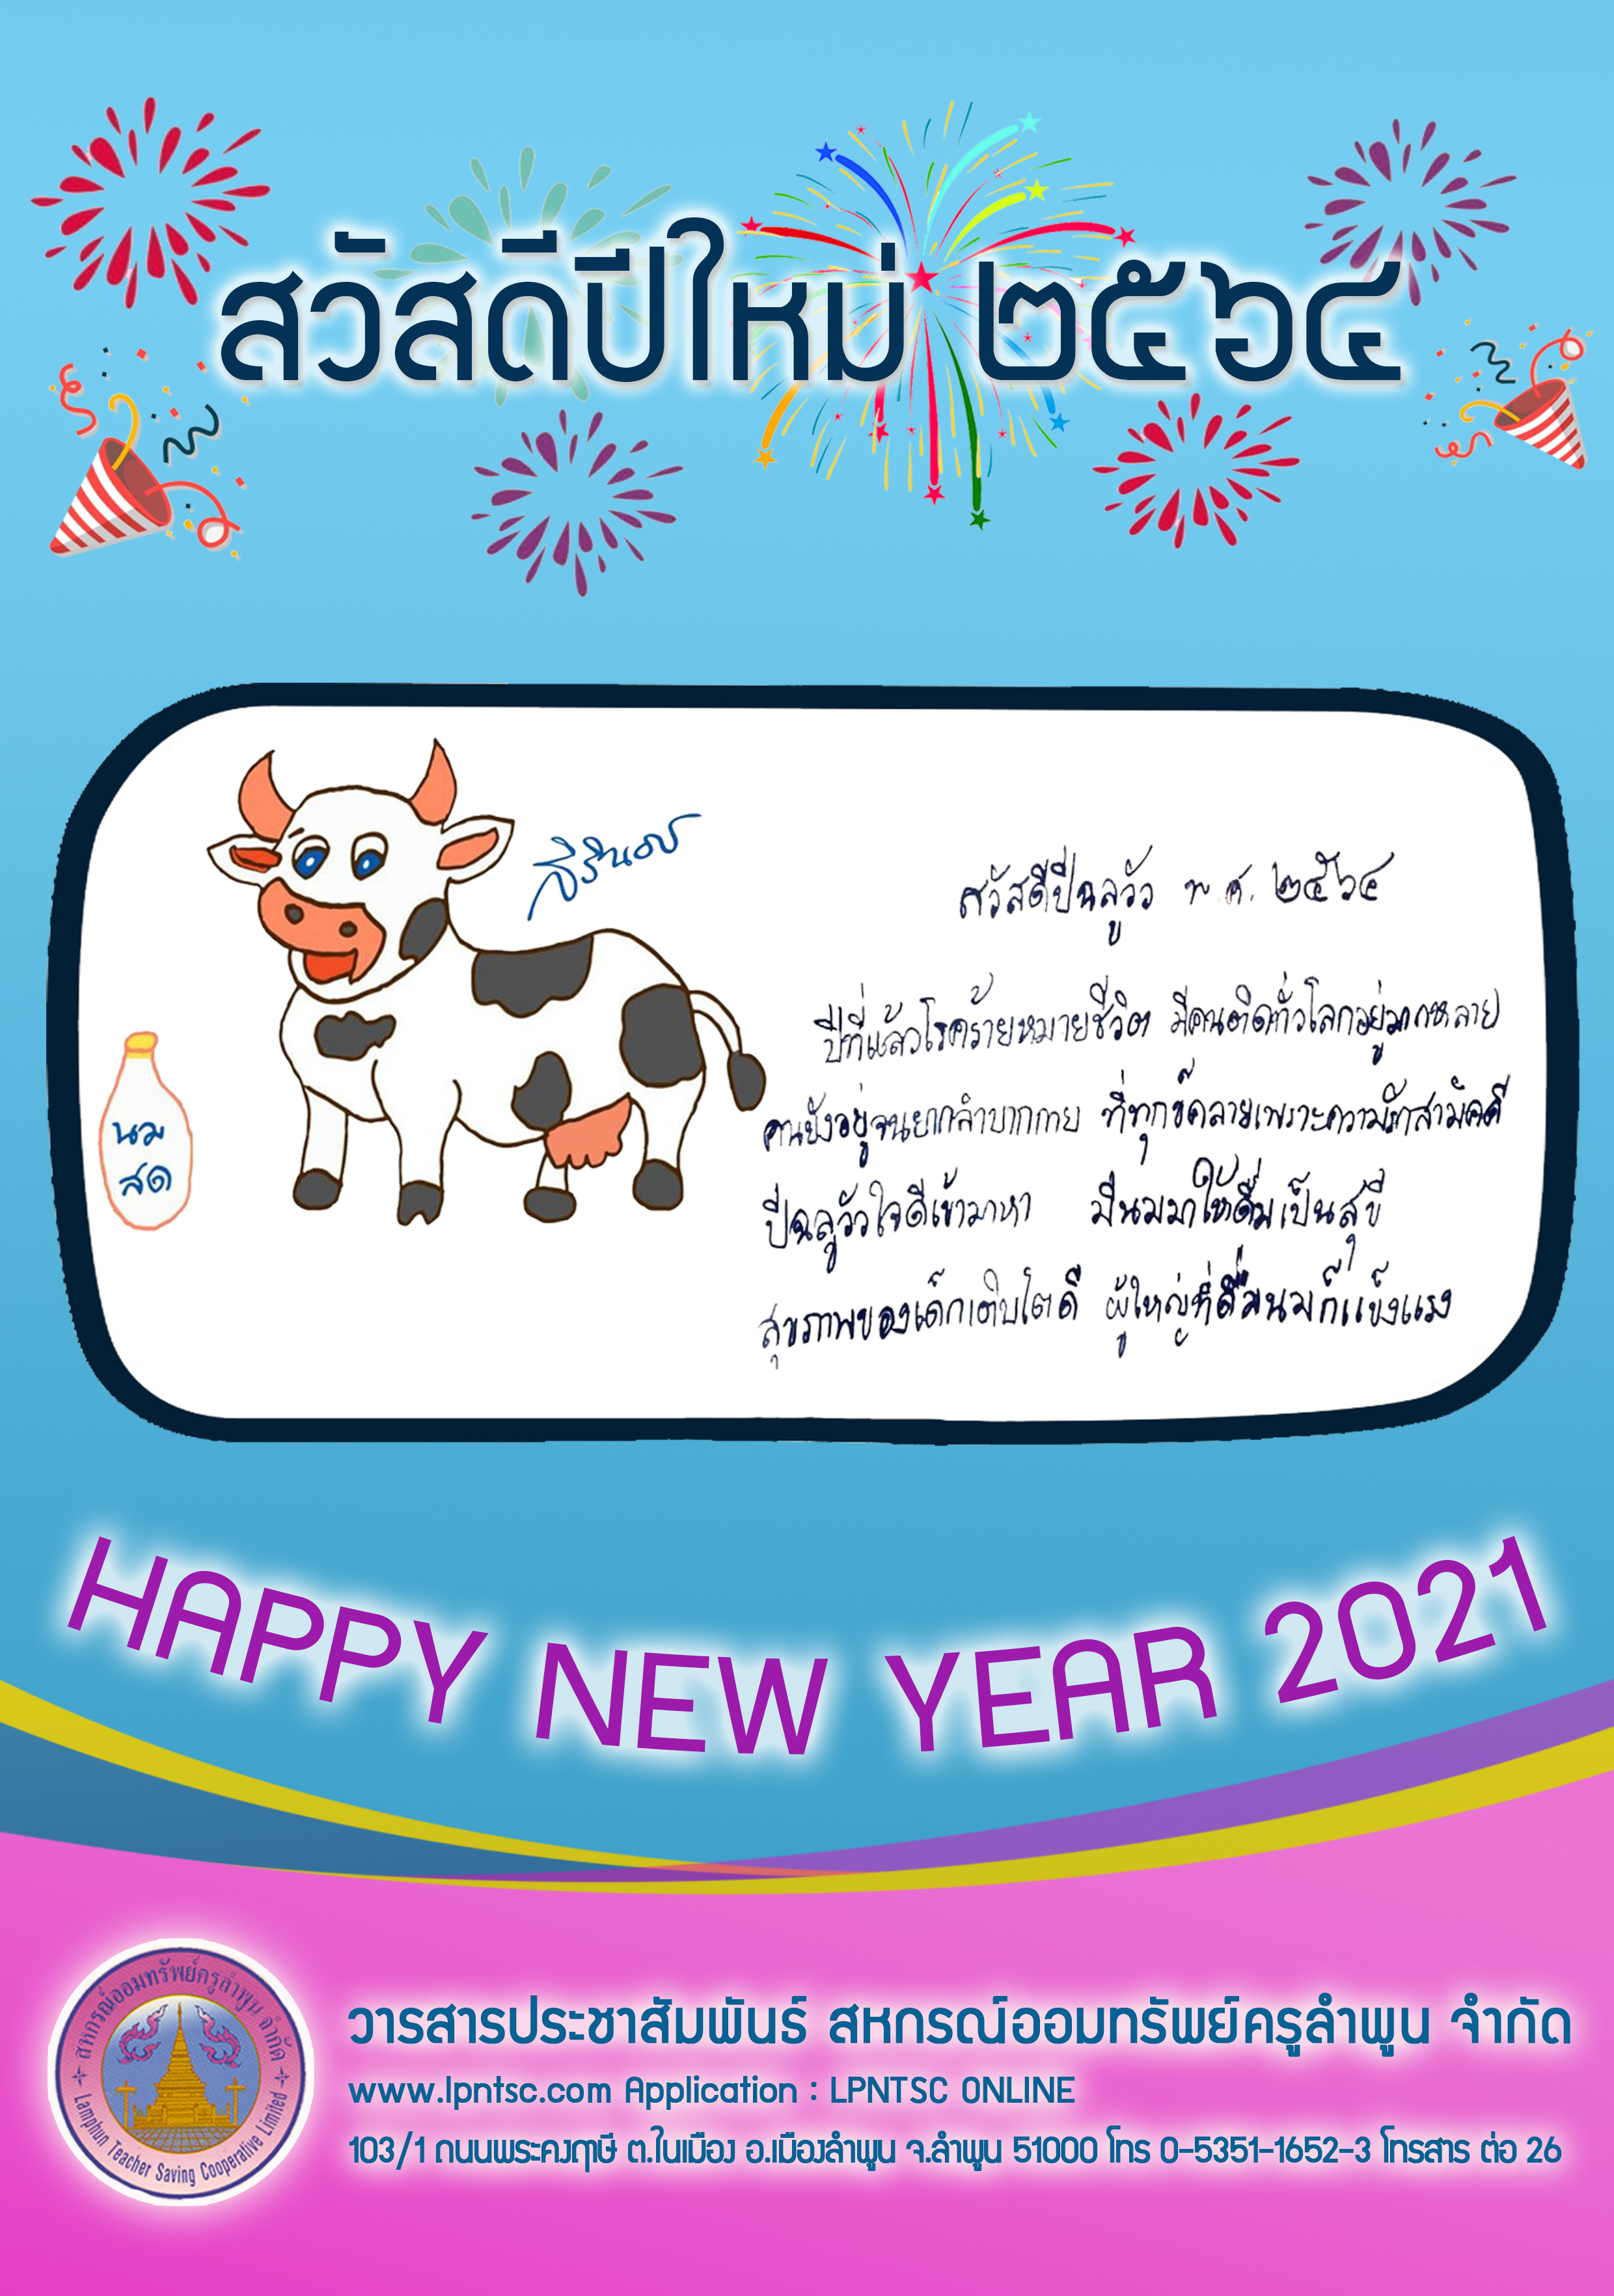 สวัสดีปีใหม่ ๒๕๖๔
สิรินธร
สวัสดีปีฉลูวัว พ.ศ. ๒๕๖๔
ปีที่แล้วโรคร้ายหมายชีวิต มีคนติดทั่วโลกอยู่มากหลาย
คนยังอยู่จนยากลำบากกาย ที่ทุกข์คลายเพราะความรักสามัคคี
ปีฉลูวัวใจดีเข้ามาหา มีนมมาให้ดื่มเป็นสุขี
สุขภาพของเด็กเติบโตดี ผู้ใหญ่ที่ดื่มนมก็แข็งแรง
นม
สด
HAPPY NEW YEAR 2021
สหกรณ์ออมทรัพย์ครูลำพูน จำกัด
Lamphun Teacher Saving Cooperative Limited
วารสารประชาสัมพันธ์ สหกรณ์ออมทรัพย์ครูลำพูน จำกัด
www.lpntsc.com Application : LPNTSC ONLINE
103/1 ถนนพระคงฤาษี ต.ในเมือง อ.เมืองลำพูน จ.ลำพูน 51000 โทร 0-5351-1652-3 โทรสาร ต่อ 26